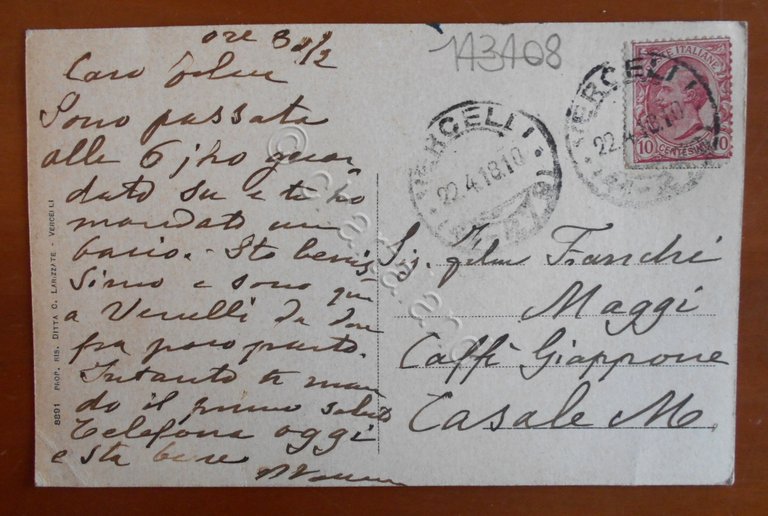 ore 8 1/2
Caro
Sono passata
alle 6; ho guar
dato su e ti ho
mandato un
bacio. - Sto benis
simo e sono qui
a Vercelli da dove
fra poco parto.
Intanto ti man
do il primo saluto
Telefona oggi
e sta bene
8891 PROP. RIS. DITTA C. LARIZZATE - VERCELLI
113108
VERCELLI
22.4.18.10
VERCELLI
22.4.18.10
POSTE ITALIANE
10 CENTESIMI 10
Sig. Franchi
Maggi
Caffè Giappone
Casale M.